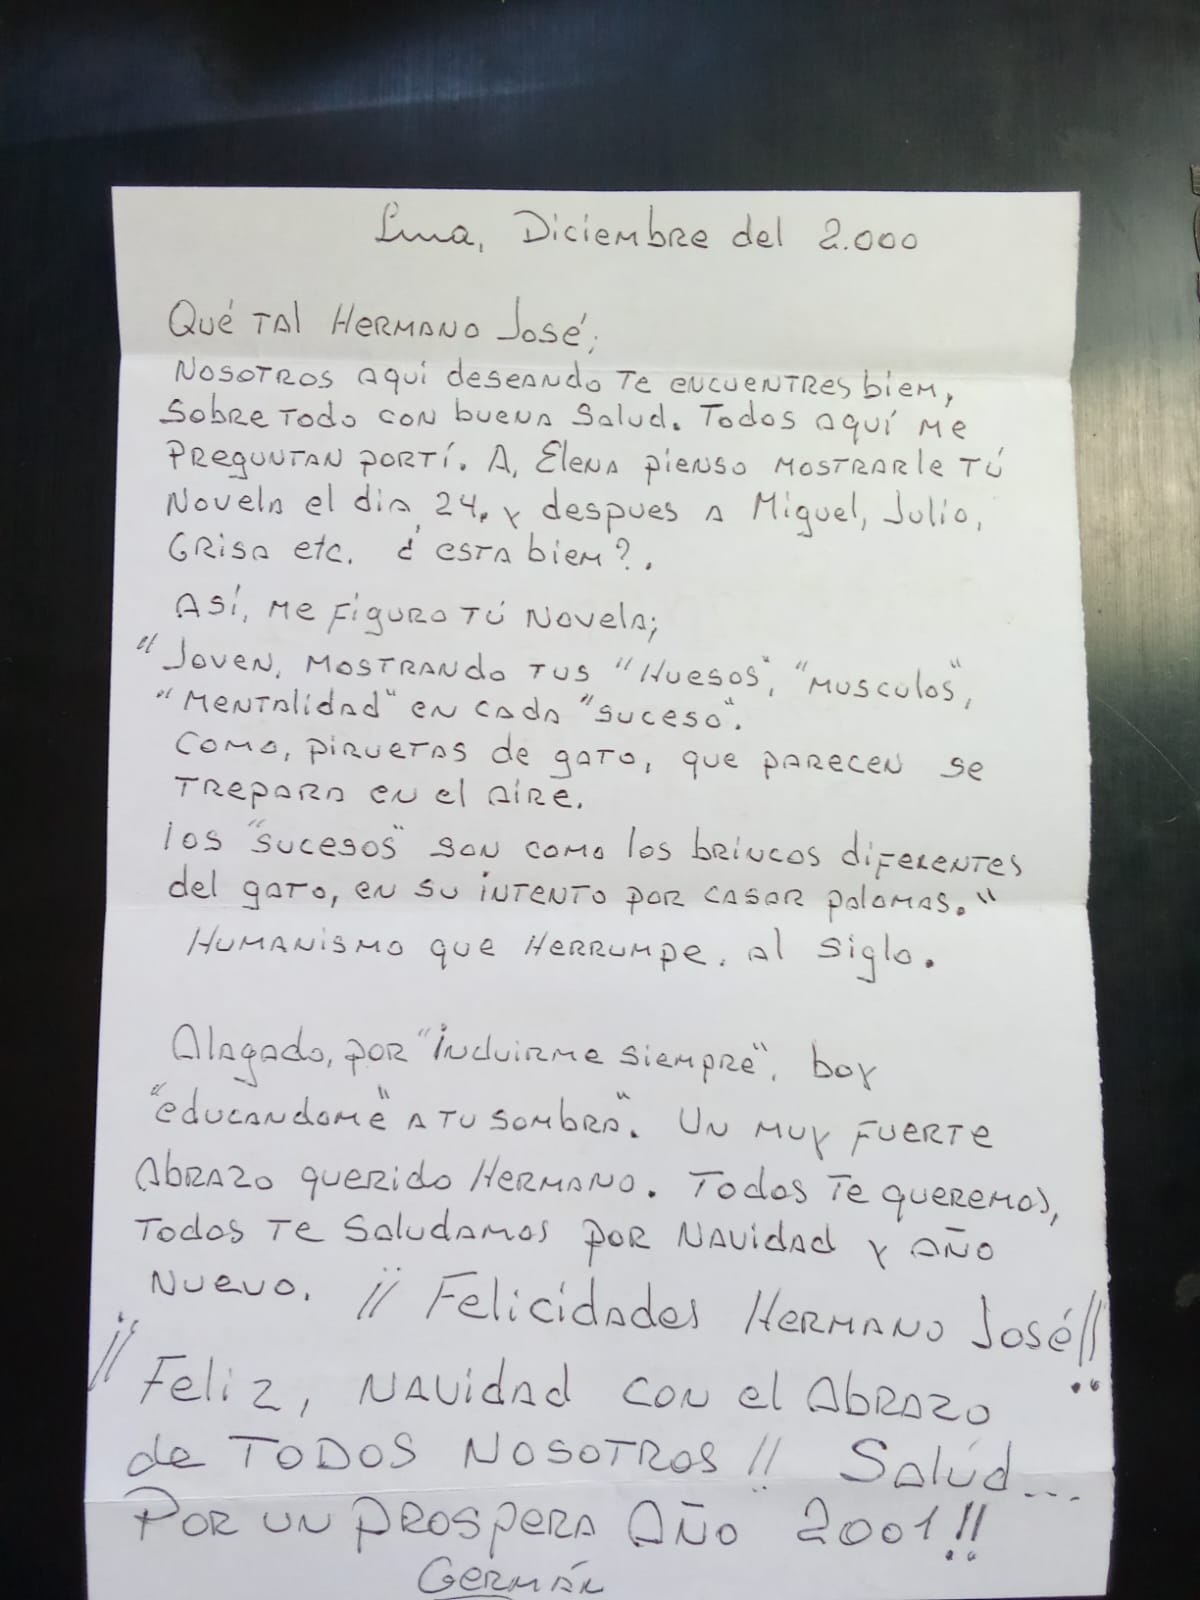 Lima, Diciembre del 2.000
Qué tal Hermano José;
Nosotros aquí deseando te encuentres biem,
sobre todo con buena salud. Todos aquí me
preguntan portí. A, Elena pienso mostrarle tú
novela el dia 24, y despues a Miguel, Julio,
Grisa etc. ¿ esta biem?.
Así, me figuro tú novela;
"Joven, mostrando tus "Huesos", "musculos",
"mentalidad" en cada "suceso".
como, piruetas de gato, que parecen se
trepara en el aire.
los "sucesos" son como los brincos diferentes
del gato, en su intento por casar palomas."
Humanismo que herrumpe, al siglo.
Alagado, por "incluirme siempre", boy
"educandome" a tu sombra". Un muy fuerte
abrazo querido Hermano. Todos te queremos,
todos te saludamos por navidad y año
nuevo. ¡¡ Felicidades Hermano José!!
¡¡ Feliz, navidad con el abrazo
de TODOS NOSOTROS!! Salúd...
Por un prospera año 2001!!
Germán